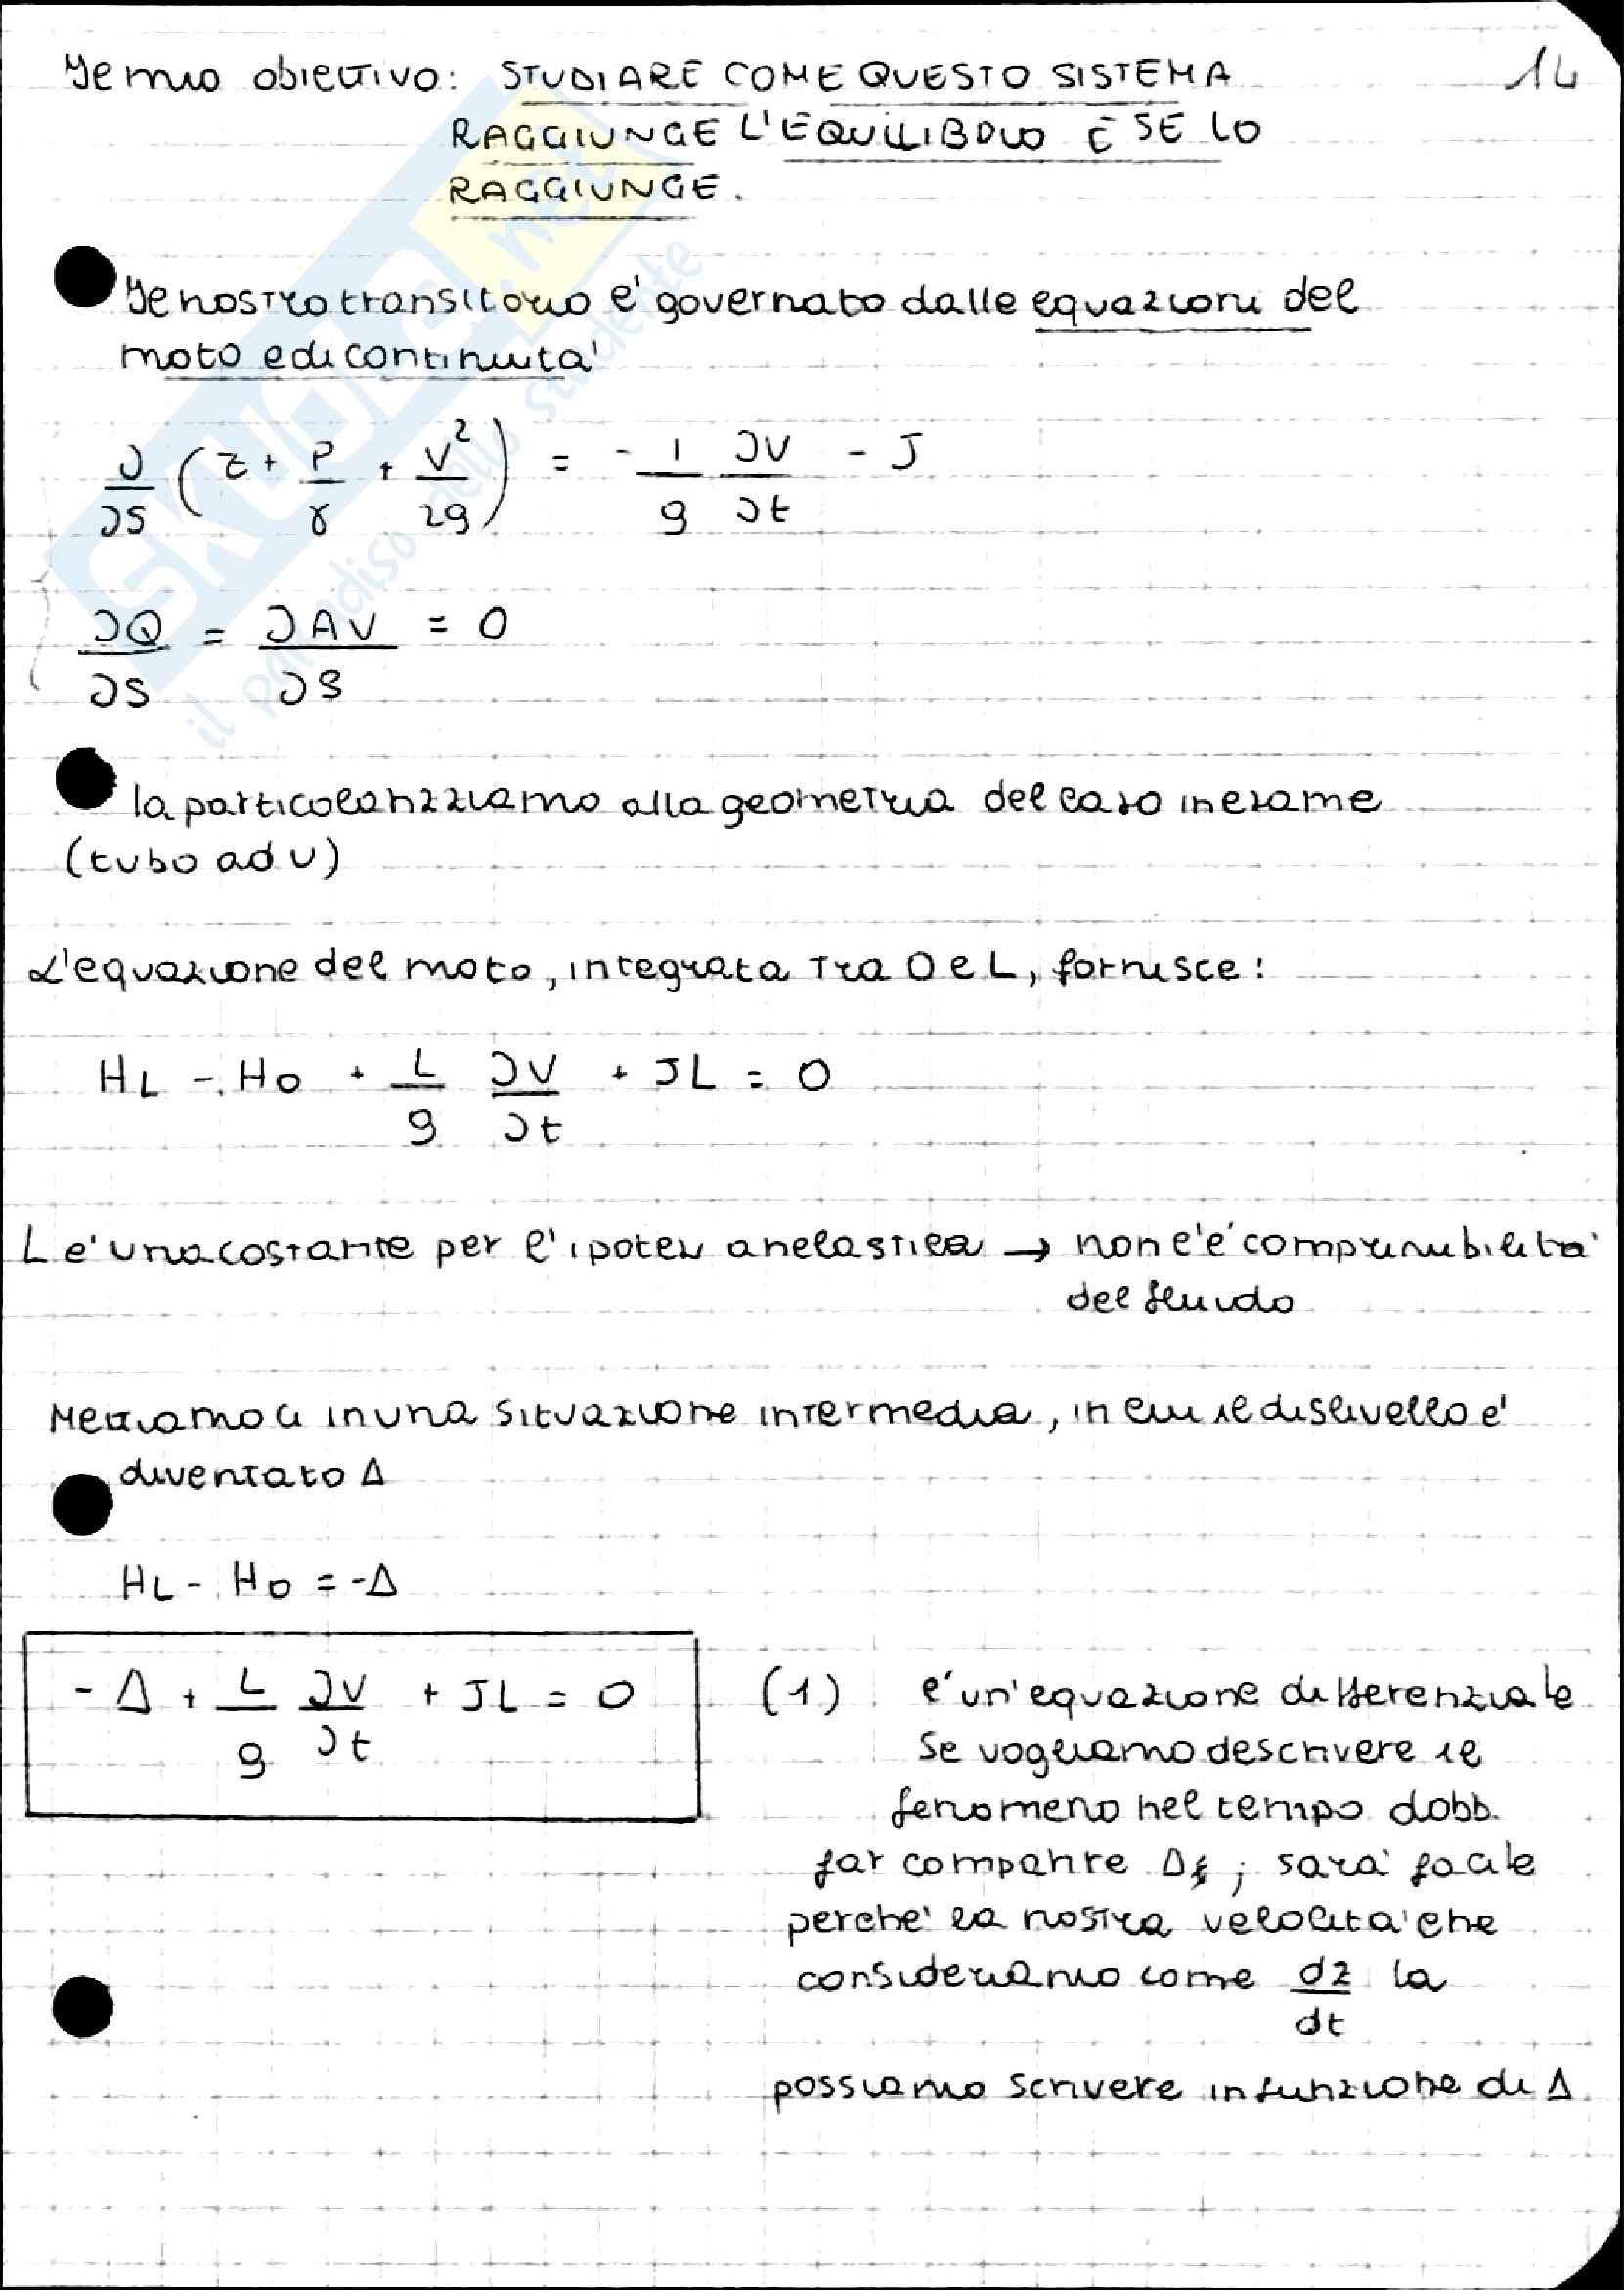 Il mio obiettivo: STUDIARE COME QUESTO SISTEMA
14
RAGGIUNGE L'EQUILIBRIO E SE LO
RAGGIUNGE.
Il nostro transitorio e' governato dalle equazioni del
moto e di continuita'
∂/∂s (z + P/γ + V²/2g) = - 1/g ∂V/∂t - J
∂Q/∂s = ∂AV/∂s = 0
la particolarizziamo alla geometria del caso in esame
(tubo ad U)
L'equazione del moto, integrata tra 0 e L, fornisce:
HL - H0 + L/g ∂V/∂t + JL = 0
L e' una costante per l'ipotesi anelastica → non c'e' comprimibilita'
del fluido
Mettiamoci in una situazione intermedia, in cui il dislivello e'
diventato Δ
HL - H0 = -Δ
-Δ + L/g ∂V/∂t + JL = 0 (1) e' un'equazione differenziale
se vogliamo descrivere il
fenomeno nel tempo dobb.
far comparire Δ ; sara' facile
perche' la nostra velocita' che
consideriamo come dz/dt la
possiamo scrivere in funzione di Δ
SKUOLA.net
il paradiso dello studente